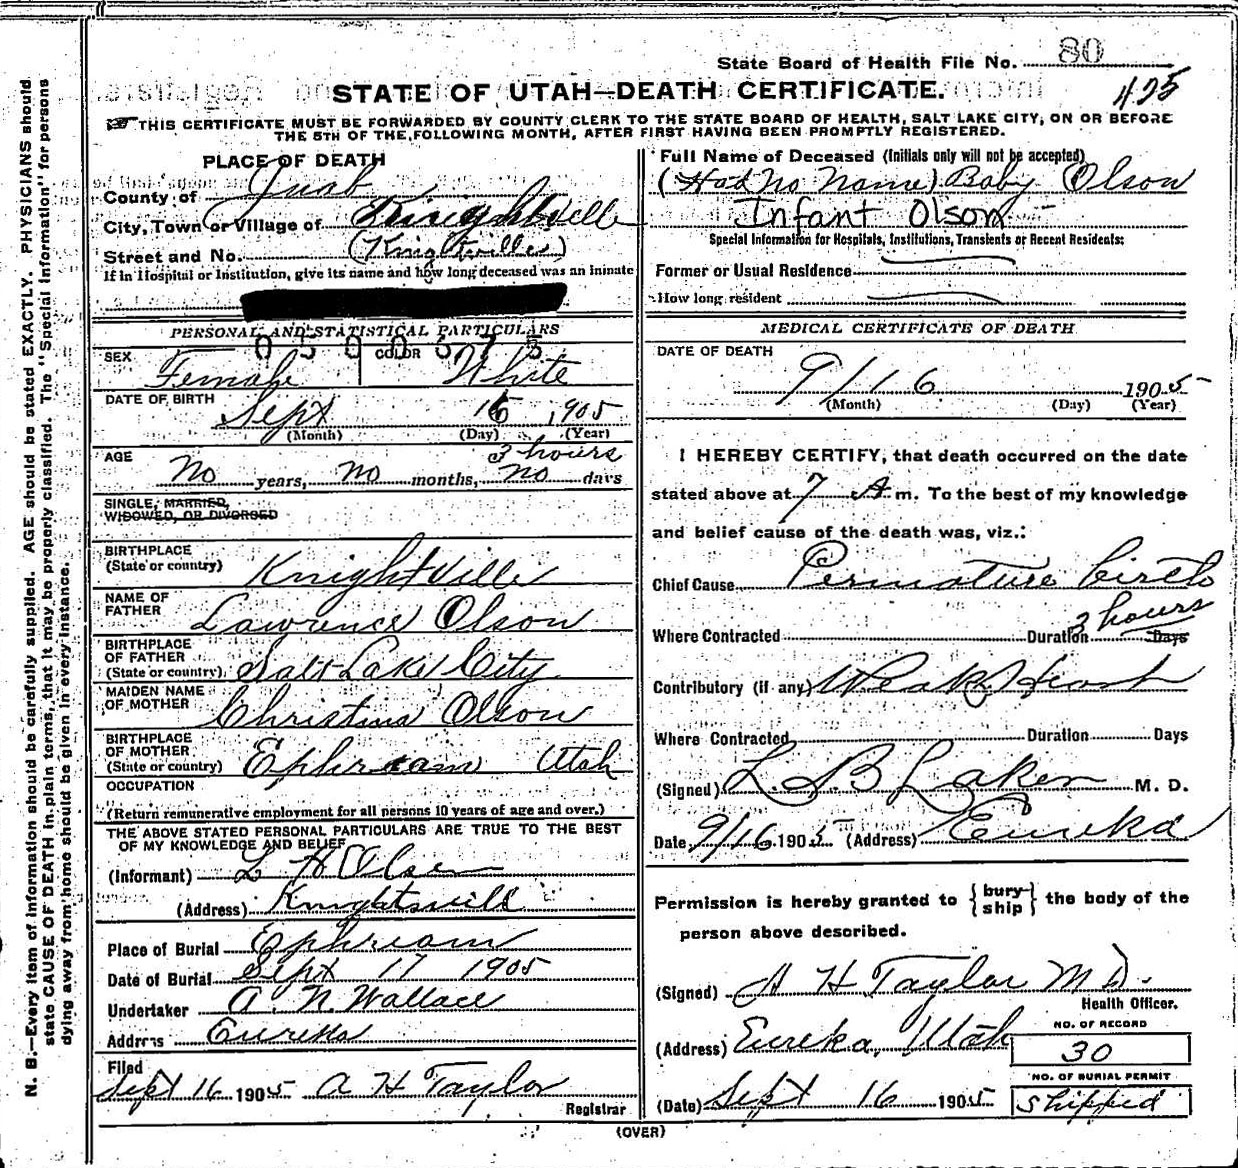 State Board of Health File No. 80
STATE OF UTAH—DEATH CERTIFICATE.
425
THIS CERTIFICATE MUST BE FORWARDED BY COUNTY CLERK TO THE STATE BOARD OF HEALTH, SALT LAKE CITY, ON OR BEFORE
THE 5TH OF THE FOLLOWING MONTH, AFTER FIRST HAVING BEEN PROMPTLY REGISTERED.
PLACE OF DEATH
County of Juab
City, Town or Village of Knightville
Street and No. (Knightville)
If in Hospital or Institution, give its name and how long deceased was an inmate
PERSONAL AND STATISTICAL PARTICULARS
SEX Female COLOR White
DATE OF BIRTH Sept 16, 1905
(Month) (Day) (Year)
3 hours
AGE No years, No months, no days
SINGLE, MARRIED,
WIDOWED, OR DIVORCED
BIRTHPLACE
(State or country) Knightville
NAME OF
FATHER Lawrence Olson
BIRTHPLACE
OF FATHER
(State or country) Salt Lake City
MAIDEN NAME
OF MOTHER Christina Olson
BIRTHPLACE
OF MOTHER
(State or country) Ephream Utah
OCCUPATION
(Return remunerative employment for all persons 10 years of age and over.)
THE ABOVE STATED PERSONAL PARTICULARS ARE TRUE TO THE BEST
OF MY KNOWLEDGE AND BELIEF
(Informant) L H Olsen
(Address) Knightsvill
Place of Burial Ephream
Date of Burial Sept 17 1905
Undertaker A. N. Wallace
Address Eureka
Filed
Sept 16 1905 A H Taylor
Registrar
Full Name of Deceased (Initials only will not be accepted)
(Had no name) Baby Olson
Infant Olson
Special Information for Hospitals, Institutions, Transients or Recent Residents:
Former or Usual Residence
How long resident
MEDICAL CERTIFICATE OF DEATH
DATE OF DEATH
9/16 1905
(Month) (Day) (Year)
I HEREBY CERTIFY, that death occurred on the date
stated above at 7 A m. To the best of my knowledge
and belief cause of the death was, viz.:
Chief Cause Permature birth
3 hours
Where Contracted Duration Days
Contributory (if any) Weak Heart
Where Contracted Duration Days
(Signed) L. B Laker M. D.
Date 9/16 1905 (Address) Eureka
Permission is hereby granted to {bury ship} the body of the
person above described.
(Signed) A H Taylor M D.
Health Officer.
(Address) Eureka, Utah
NO. OF RECORD
30
NO. OF BURIAL PERMIT
(Date) Sept 16 1905 Shipped
(OVER)
N. B.—Every item of information should be carefully supplied. AGE should be stated EXACTLY. PHYSICIANS should
state CAUSE OF DEATH in plain terms, that it may be properly classified. The "Special Information" for persons
dying away from home should be given in every instance.